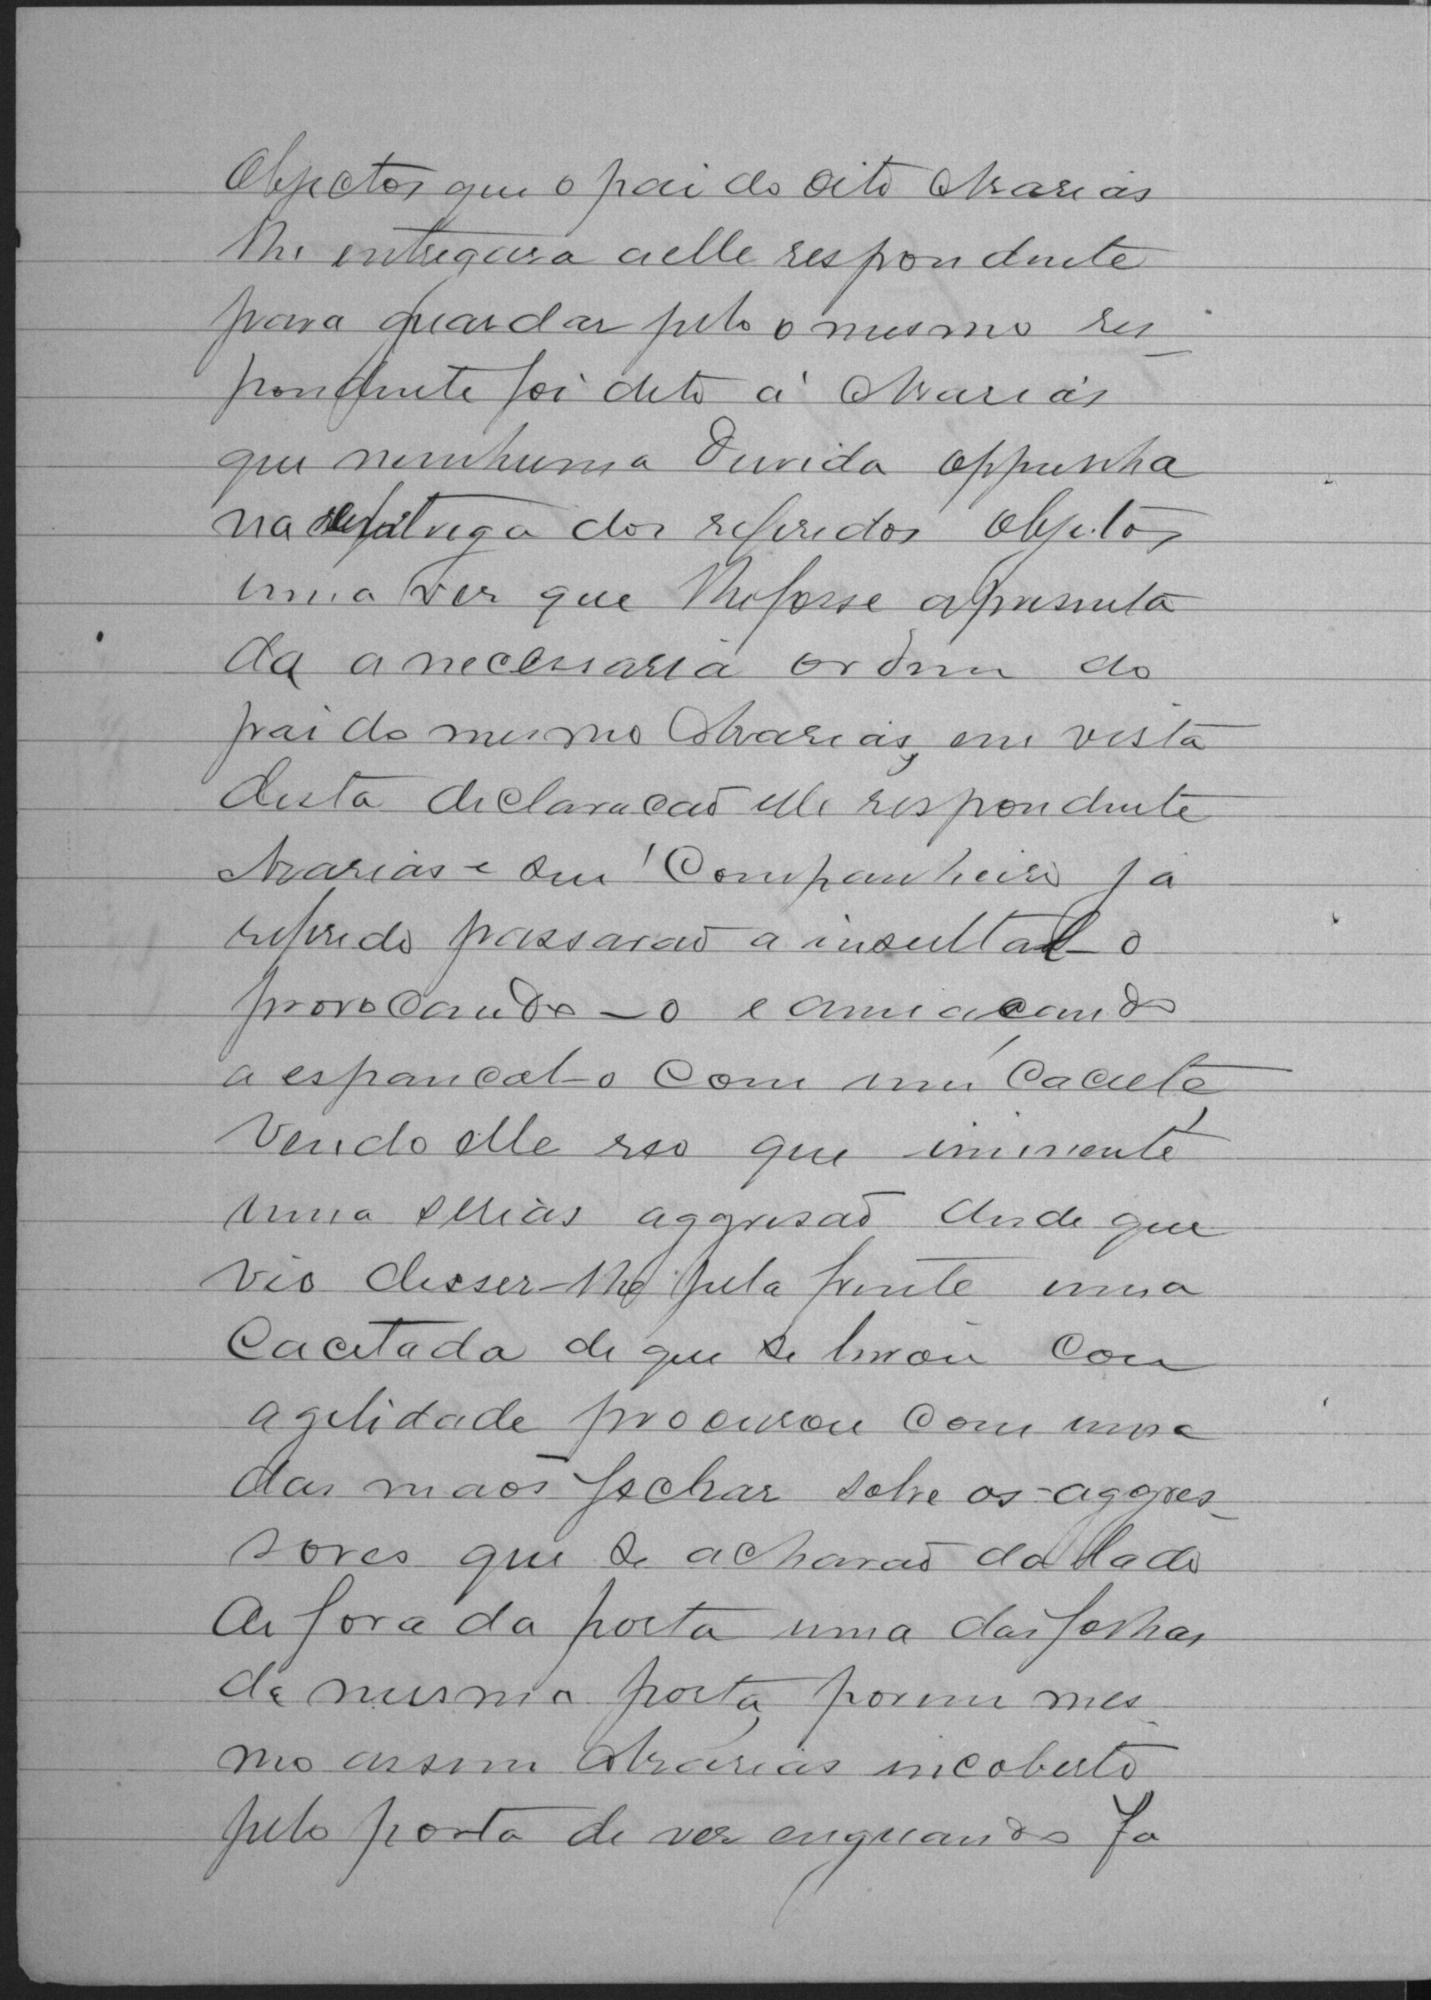 Objectos que o pai do dito Ananias
lhe entregara aelle respondente
para guardar pelo o mesmo res_
pondente foi dito á Ananias
que nenhuma duvida oppunha
na entrega dos referidos objetos
uma ves que lhe fosse apresenta
da a necessaria ordem do
pai do mesmo Ananias, em vista
desta declaracaõ elle respondente
Ananias e seu Companheiro ja
referido passaraõ a insultal-o
provocando-o e ameacando
a espancal-o com um cacete
Vendo elle reo que iminente
uma serias aggresaõ desde que
vio desser-lhe pela frente uma
Cacetada de que se livrou com
agelidade procurou com uma
das maõs fechar sobre os aggres_
sores que se acharaõ da lado
de fora da porta uma das folhas
da mesma porta, porem mes_
mo assim Ananias incoberto
pelo porta de ves enquando fa